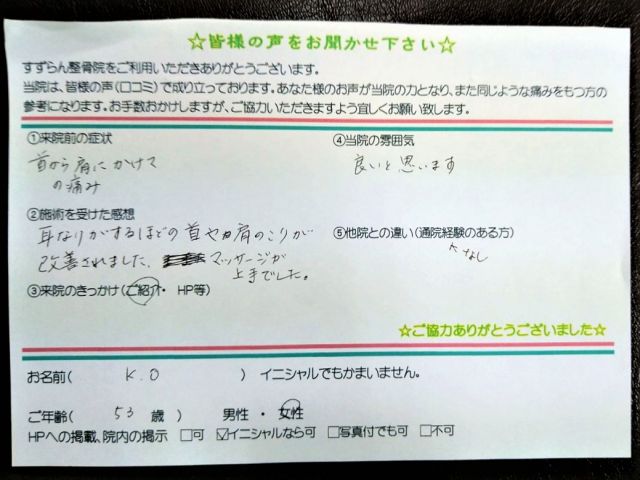 ☆皆様の声をお聞かせ下さい☆
すずらん整骨院をご利用いただきありがとうございます。
当院は、皆様の声(口コミ)で成り立っております。あなた様のお声が当院の力となり、また同じような痛みをもつ方の
参考になります。お手数おかけしますが、ご協力いただきますよう宜しくお願い致します。
①来院前の症状
首から肩にかけて
の痛み
②施術を受けた感想
耳なりがするほどの首や肩のこりが
改善されました、マッサージが
上手でした。
③来院のきっかけ(ご紹介・HP等)
④当院の雰囲気
良いと思います
⑤他院との違い(通院経験のある方)
なし
☆ご協力ありがとうございました☆
お名前( K.O ) イニシャルでもかまいません。
ご年齢( 53 歳 ) 男性・女性
HPへの掲載、院内の掲示 □可 ☑イニシャルなら可 □写真付でも可 □不可